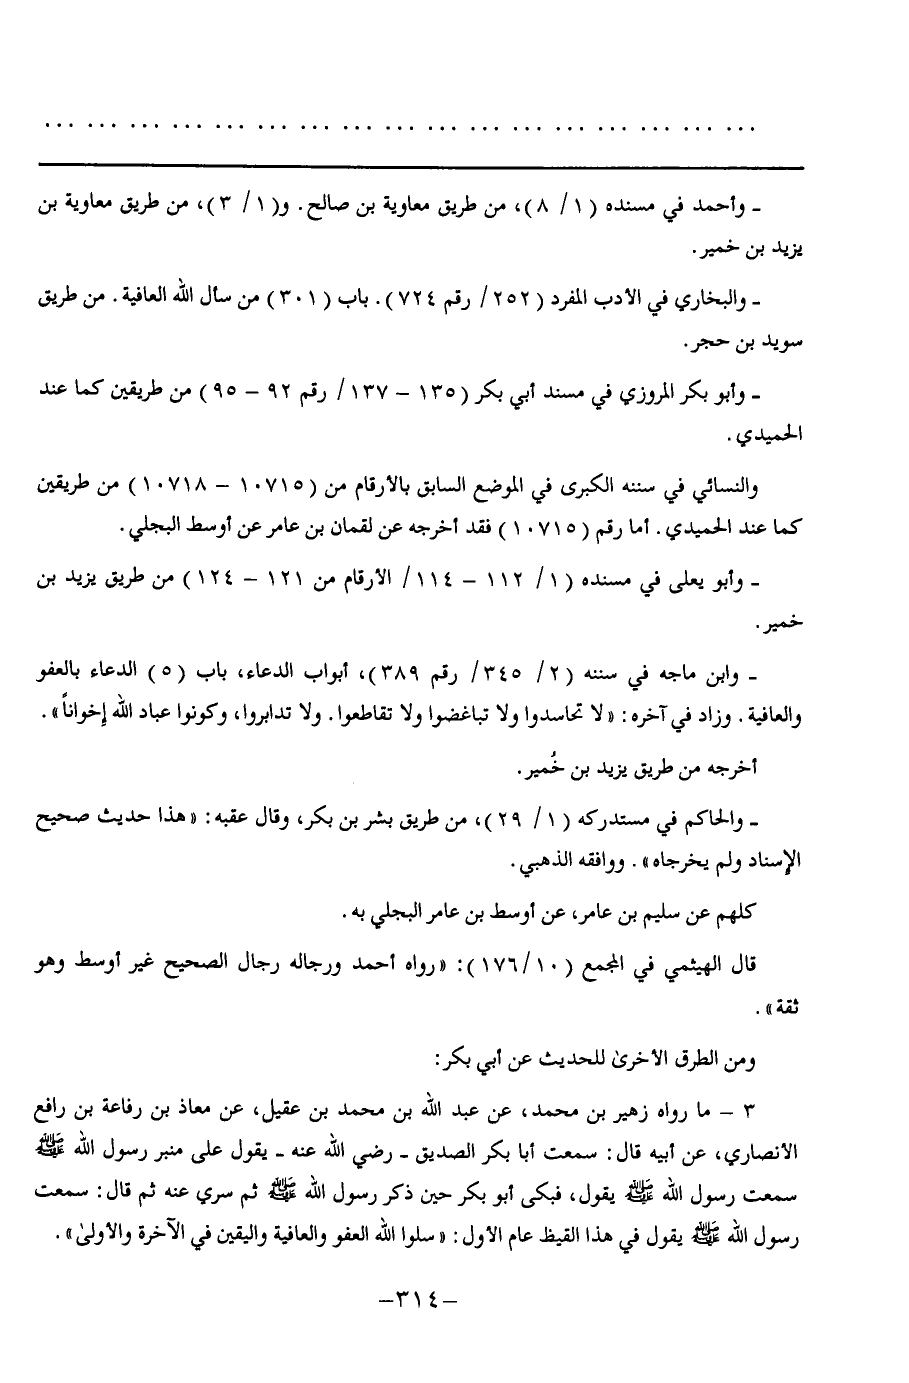 ... ... ... ... ... ... ... ... ... ... ... ... ... ... ... ... ...
ـ وأحمد في مسنده (١/ ٨)، من طريق معاوية بن صالح. و(١/ ٣)، من طريق معاوية بن
يزيد بن خمير.
ـ والبخاري في الأدب المفرد (٢٥٢/ رقم ٧٢٤). باب (٣٠١) من سأل الله العافية. من طريق
سويد بن حجر.
ـ وأبو بكر المروزي في مسند أبي بكر (١٣٥ – ١٣٧/ رقم ٩٢ – ٩٥) من طريقين كما عند
الحميدي.
والنسائي في سننه الكبرى في الموضع السابق بالأرقام من (١٠٧١٥ – ١٠٧١٨) من طريقين
كما عند الحميدي. أما رقم (١٠٧١٥) فقد أخرجه عن لقمان بن عامر عن أوسط البجلي.
ـ وأبو يعلى في مسنده (١/ ١١٢ – ١١٤/ الأرقام من ١٢١ – ١٢٤) من طريق يزيد بن
خمير.
ـ وابن ماجه في سننه (٢/ ٣٤٥/ رقم ٣٨٩)، أبواب الدعاء، باب (٥) الدعاء بالعفو
والعافية. وزاد في آخره: «لا تحاسدوا ولا تباغضوا ولا تقاطعوا. ولا تدابروا، وكونوا عباد الله إخواناً».
أخرجه من طريق يزيد بن خُمير.
ـ والحاكم في مستدركه (١/ ٢٩)، من طريق بشر بن بكر، وقال عقبه: «هذا حديث صحيح
الإسناد ولم يخرجاه». ووافقه الذهبي.
كلهم عن سليم بن عامر، عن أوسط بن عامر البجلي به.
قال الهيثمي في المجمع (١٧٦/١٠): «رواه أحمد ورجاله رجال الصحيح غير أوسط وهو
ثقة».
ومن الطرق الأخرىٰ للحديث عن أبي بكر:
٣ – ما رواه زهير بن محمد، عن عبد الله بن محمد بن عقيل، عن معاذ بن رفاعة بن رافع
الأنصاري، عن أبيه قال: سمعت أبا بكر الصديق ـ رضي الله عنه ـ يقول على منبر رسول الله ﷺ
سمعت رسول الله ﷺ يقول، فبكى أبو بكر حين ذكر رسول الله ﷺ ثم سري عنه ثم قال: سمعت
رسول الله ﷺ يقول في هذا القيظ عام الأول: «سلوا الله العفو والعافية واليقين في الآخرة والأولىٰ».
–٣١٤–